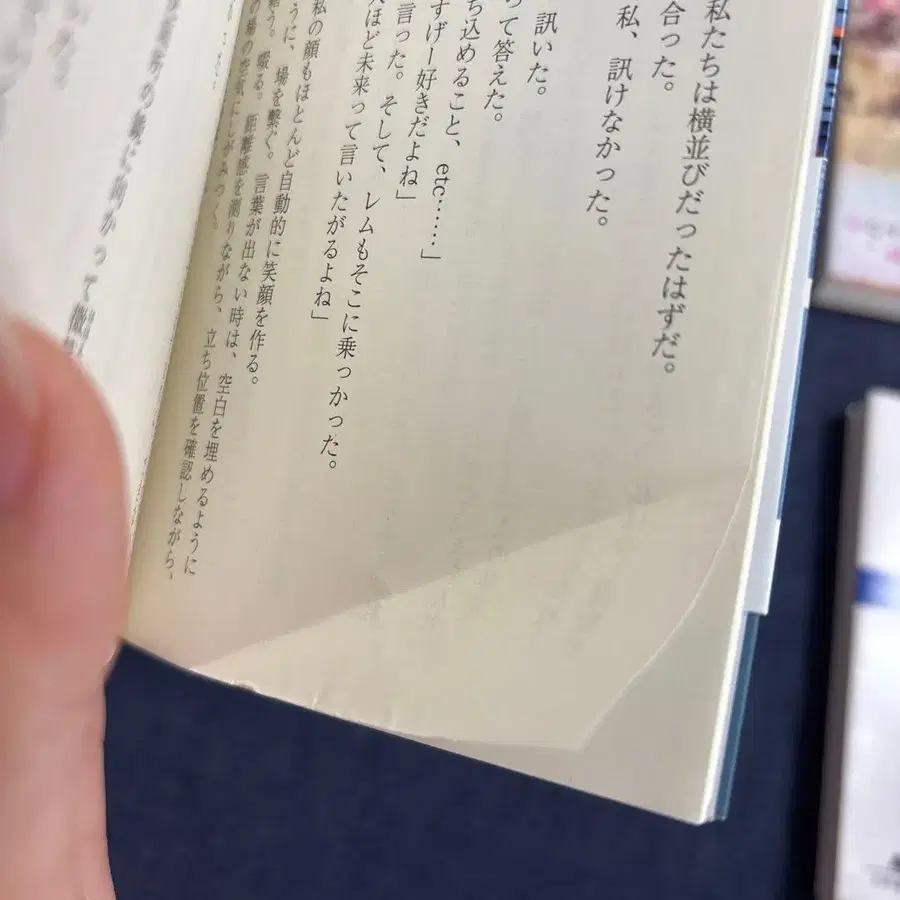 私たちは横並びだったはずだ。
合った。
私、訊けなかった。
訊いた。
って答えた。
ち込めること、etc……」
すげー好きだよね」
言った。そして、レムもそこに乗っかった。
ほど未来って言いたがるよね」
私の顔もほとんど自動的に笑顔を作る。
うに、場を繋ぐ。言葉が出ない時は、空白を埋めるように
う。啜る。距離感を測りながら、立ち位置を確認しながら、
の場の空気にしがみつく。
に向かって微